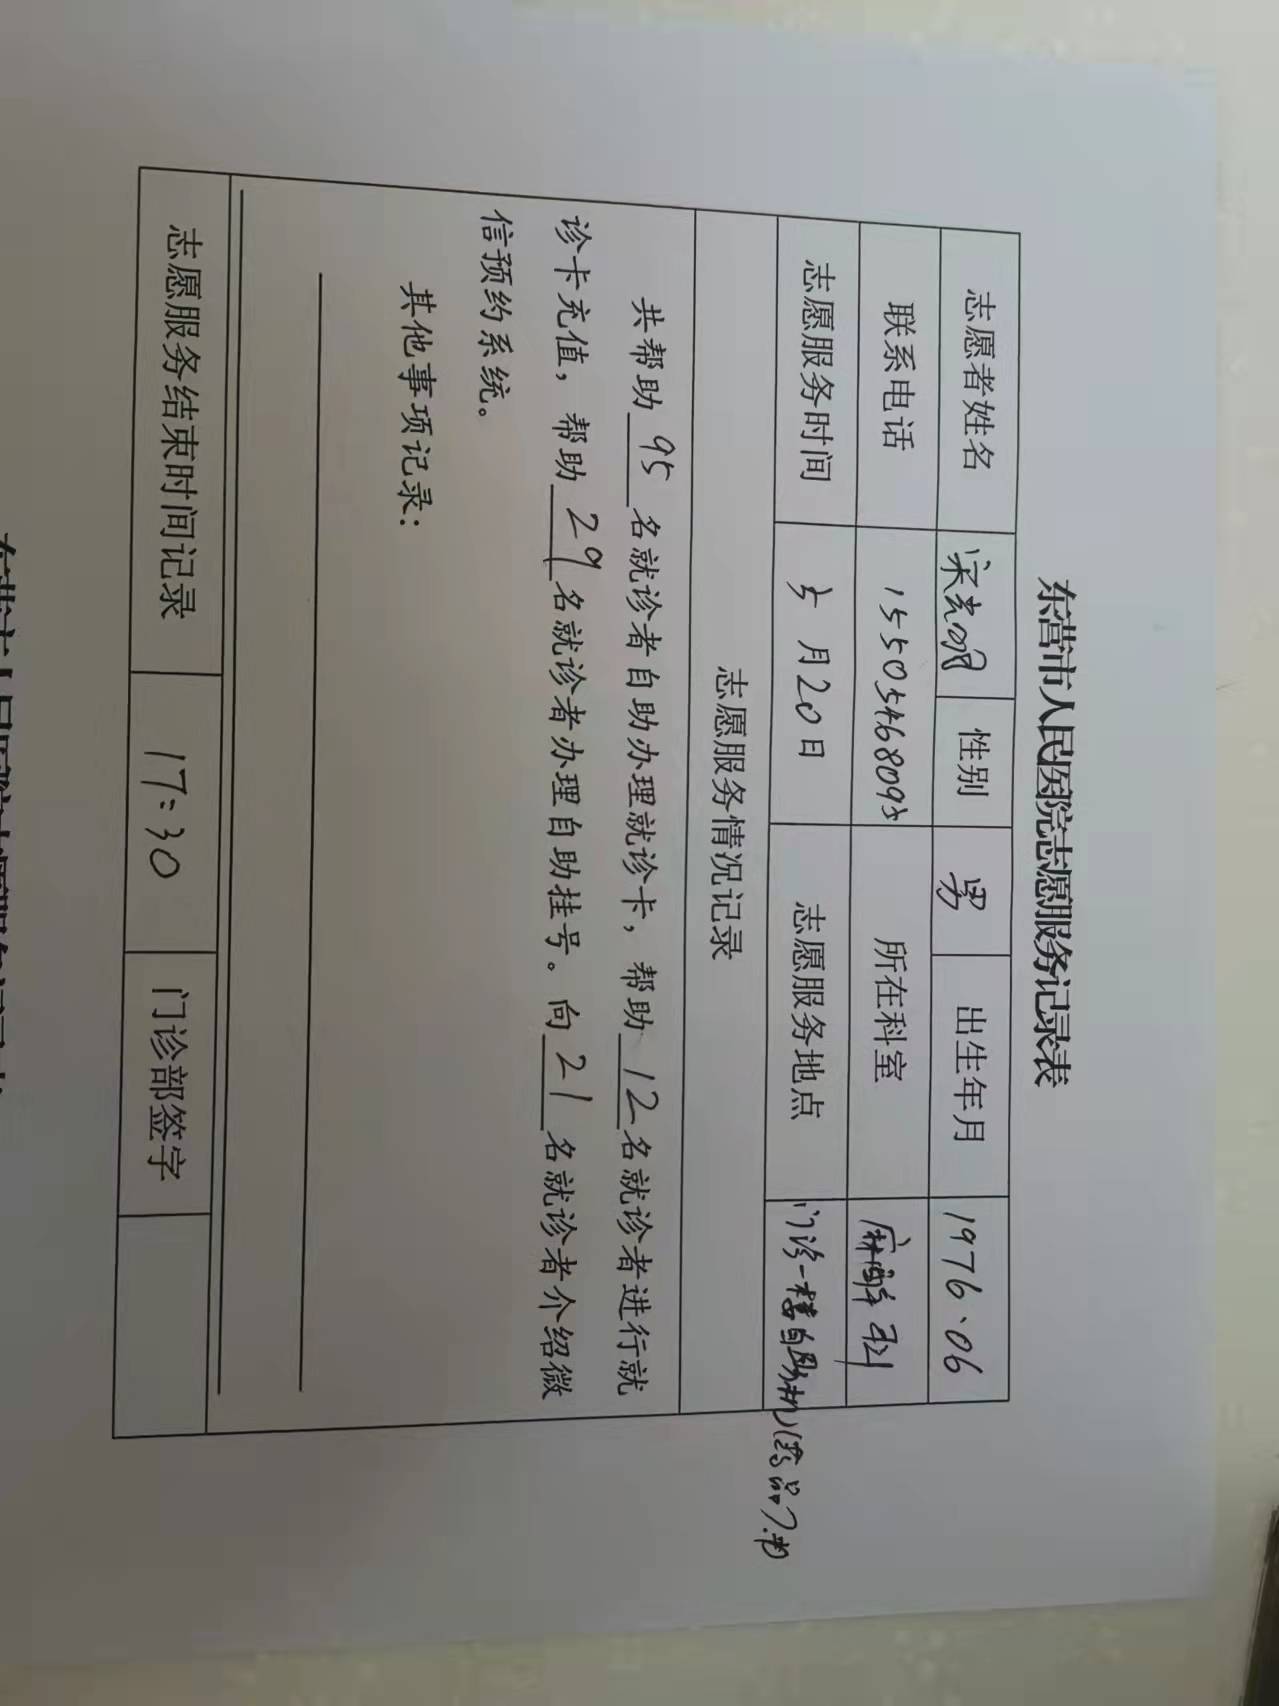 东营市人民医院志愿服务记录表
志愿者姓名 宋光明 性别 男 出生年月 1976.06
联系电话 15505468093 所在科室 麻醉科
志愿服务时间 5月20日 志愿服务地点 门诊一楼自助机
志愿服务情况记录
共帮助95名就诊者自助办理就诊卡，帮助12名就诊者进行就
诊卡充值，帮助29名就诊者办理自助挂号。向21名就诊者介绍微
信预约系统。
其他事项记录：
志愿服务结束时间记录 17:30 门诊部签字